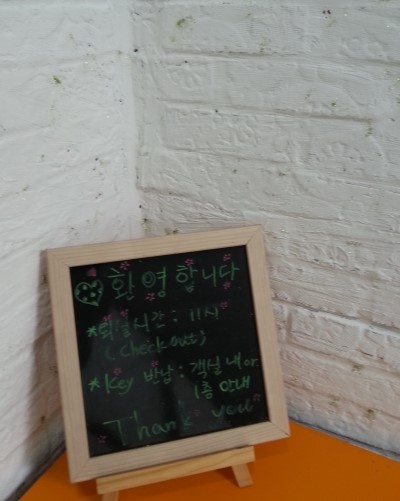 환영합니다
*퇴실시간: 11시
(Check out)
*Key 반납: 객실 내 or
1층 안내
Thank you